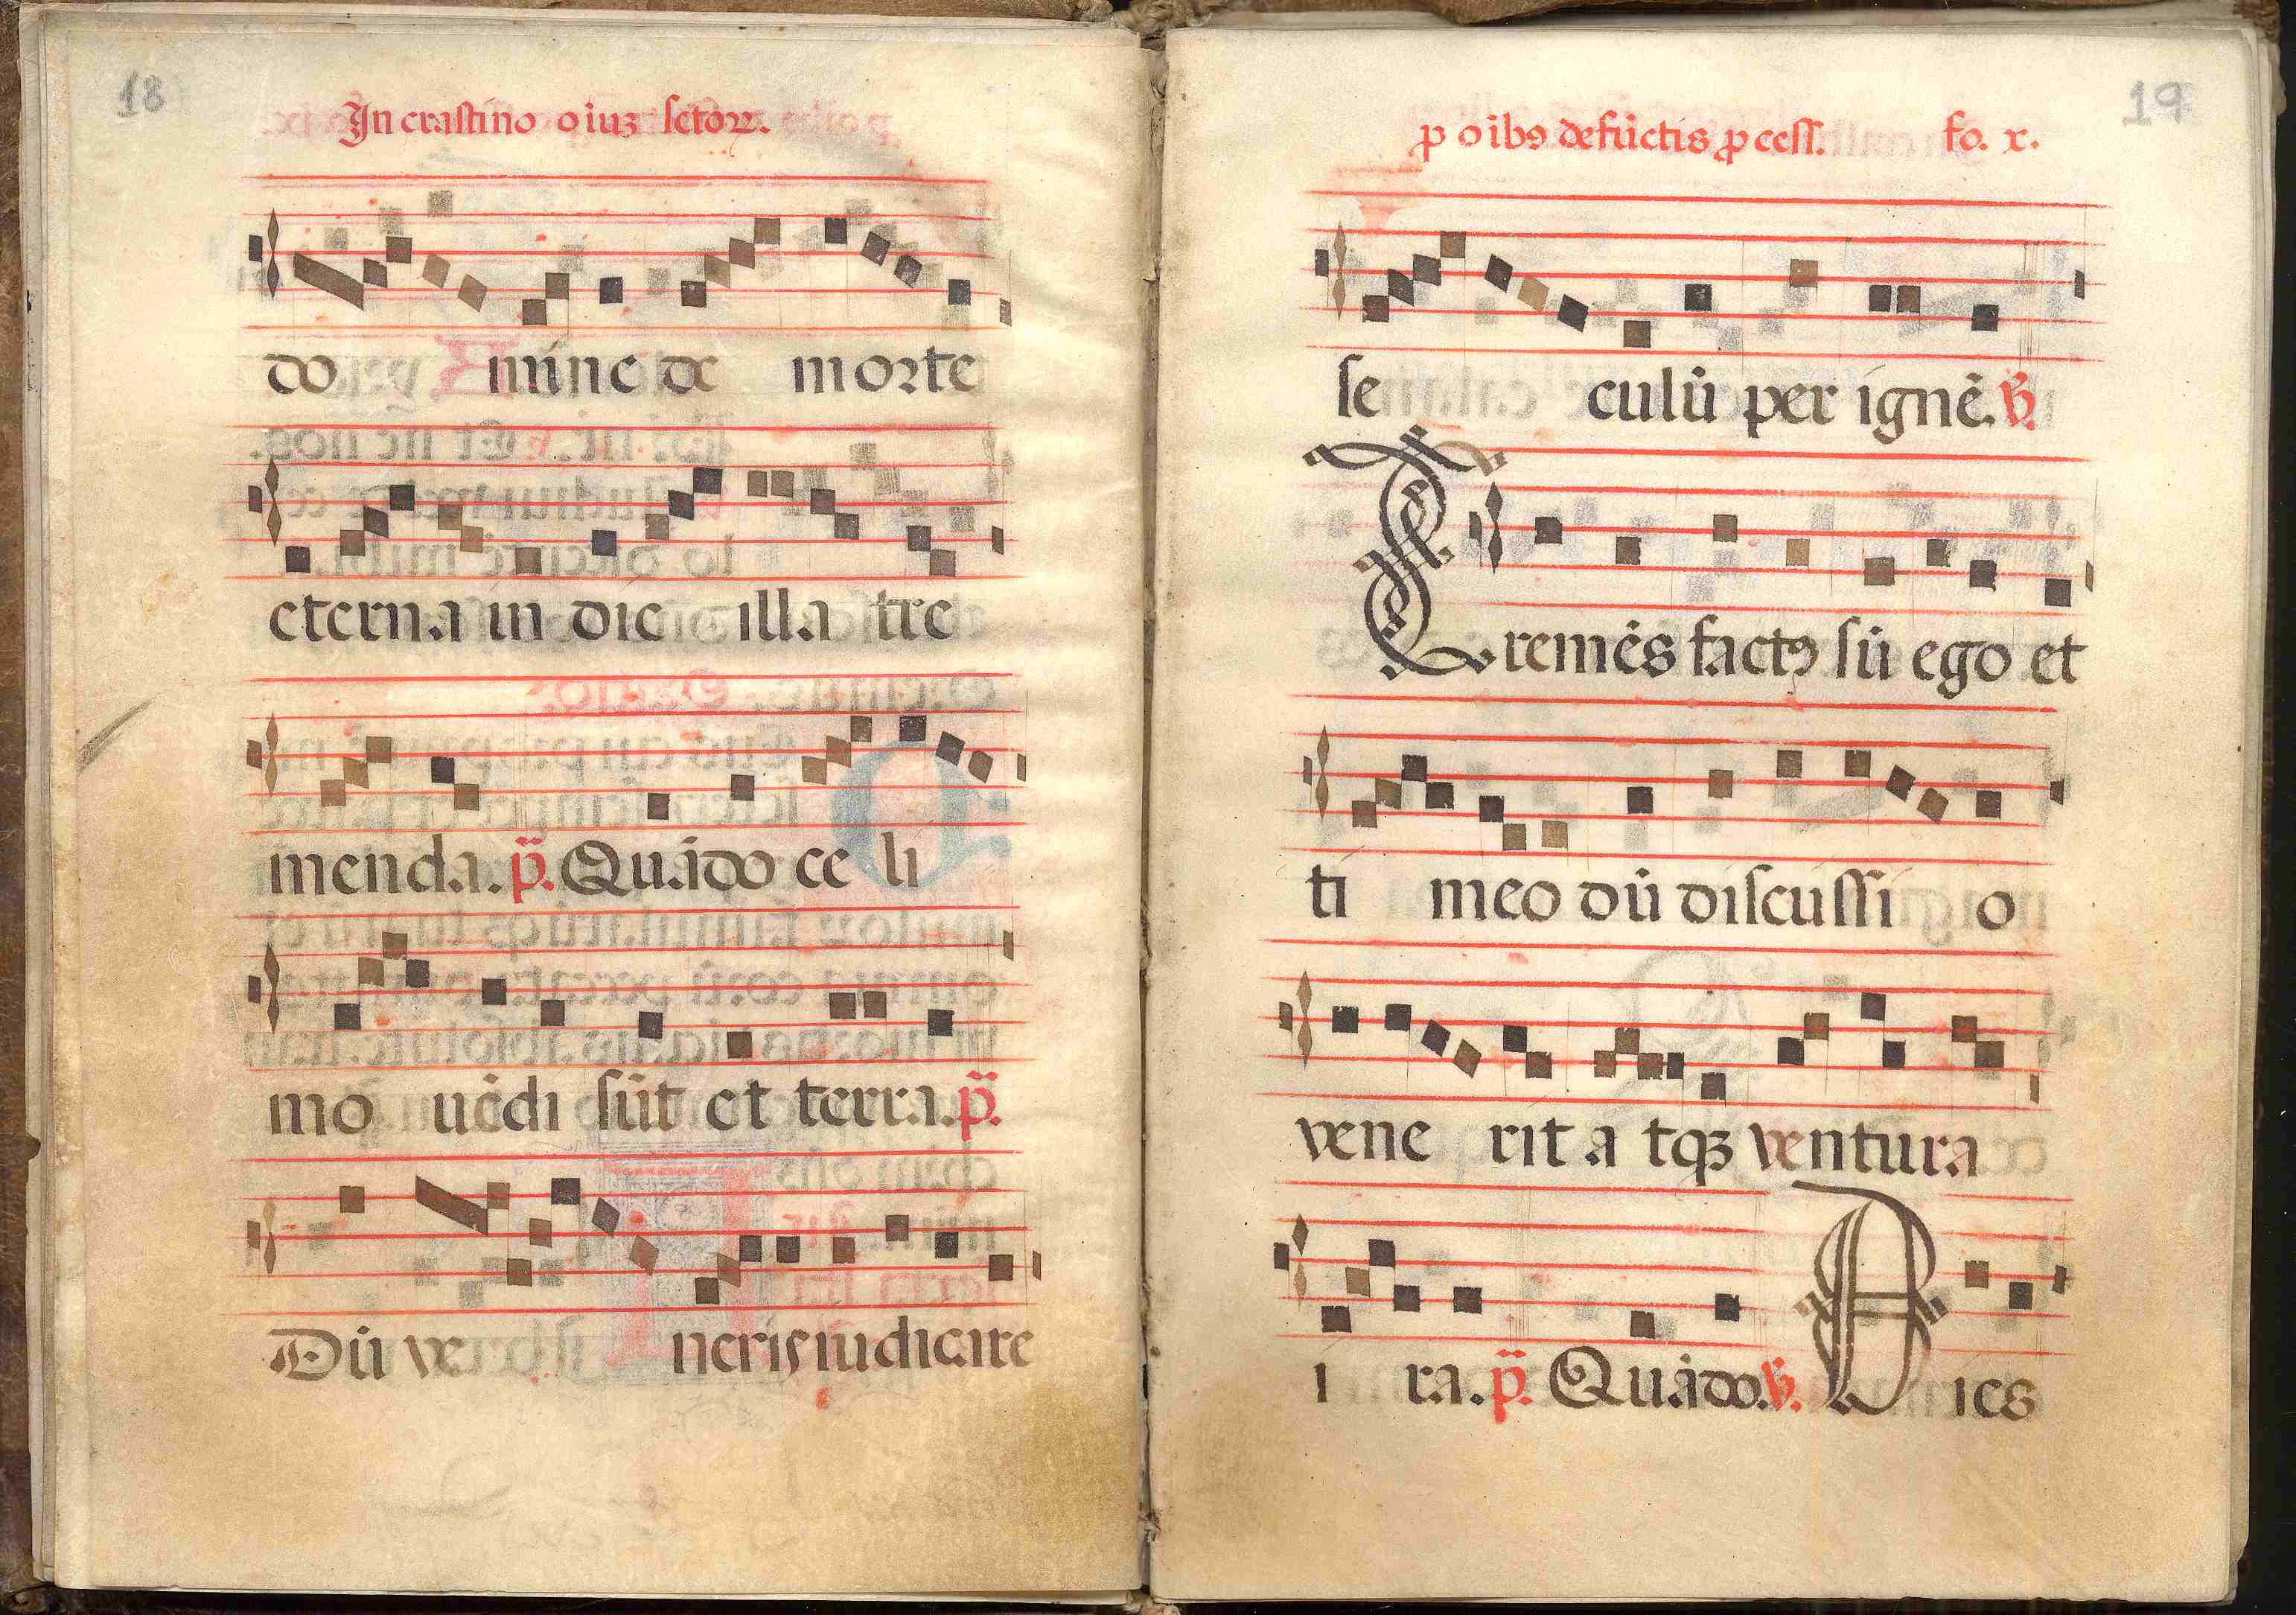 18
In crastino oiuꝫ sctoꝝ.
do mine de morte
eterna in die illa tre
menda. p̈. Quādo ce li
mo uēdi sūt et terra. p̈.
Dū ve neris iudicare
19
ꝓ oibꝰ defūctis ꝓcess. fo. x.
se culū per ignē. ℣.
Tremēs factꝰ sū ego et
ti meo dū discussi o
vene rit a tqꝫ ventura
i ra. p̈. Quādo. ℣. Dies